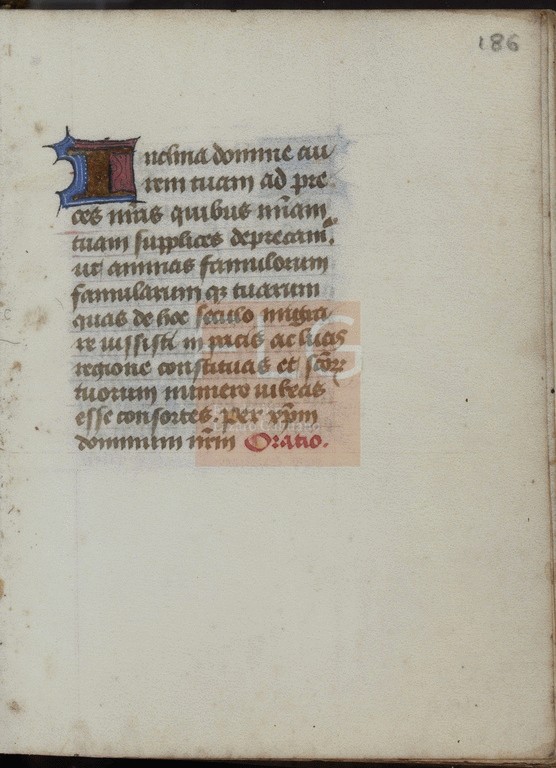 186
Inclina domine au
rem tuam ad pre
ces nr̃as quibus mĩam
tuam supplices deprecam᷒.
ut animas famulorum
famularum qꝫ tuarum
quas de hoc seculo migra
re iussisti in pacis ac lucis
regione constituas et sc̃oꝝ
tuorum numero iubeas
esse consortes. Per xp̃m
dominum nr̃m Oratio.
FLG